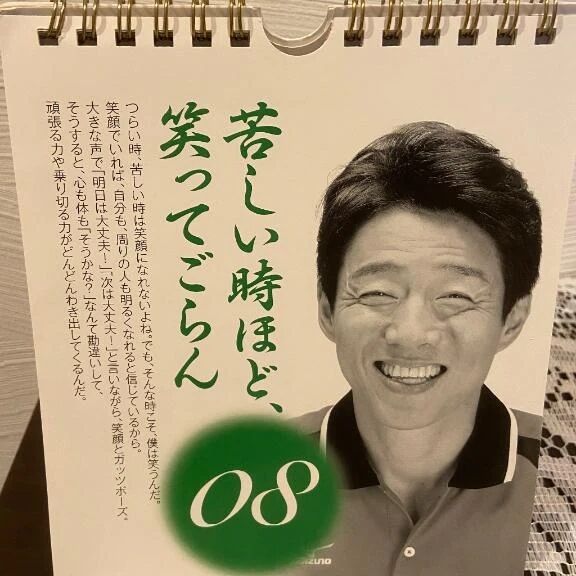 苦しい時ほど、
笑ってごらん
つらい時、苦しい時は笑顔になれないよね。でも、そんな時こそ、僕は笑うんだ。
笑顔でいれば、自分も、周りの人も明るくなれると信じているから。
大きな声で「明日は大丈夫！」「次は大丈夫！」と言いながら、笑顔とガッツポーズ。
そうすると、心も体も「そうかな？」なんて勘違いして、
頑張る力や乗り切る力がどんどんわき出してくるんだ。
08
MIZUNO